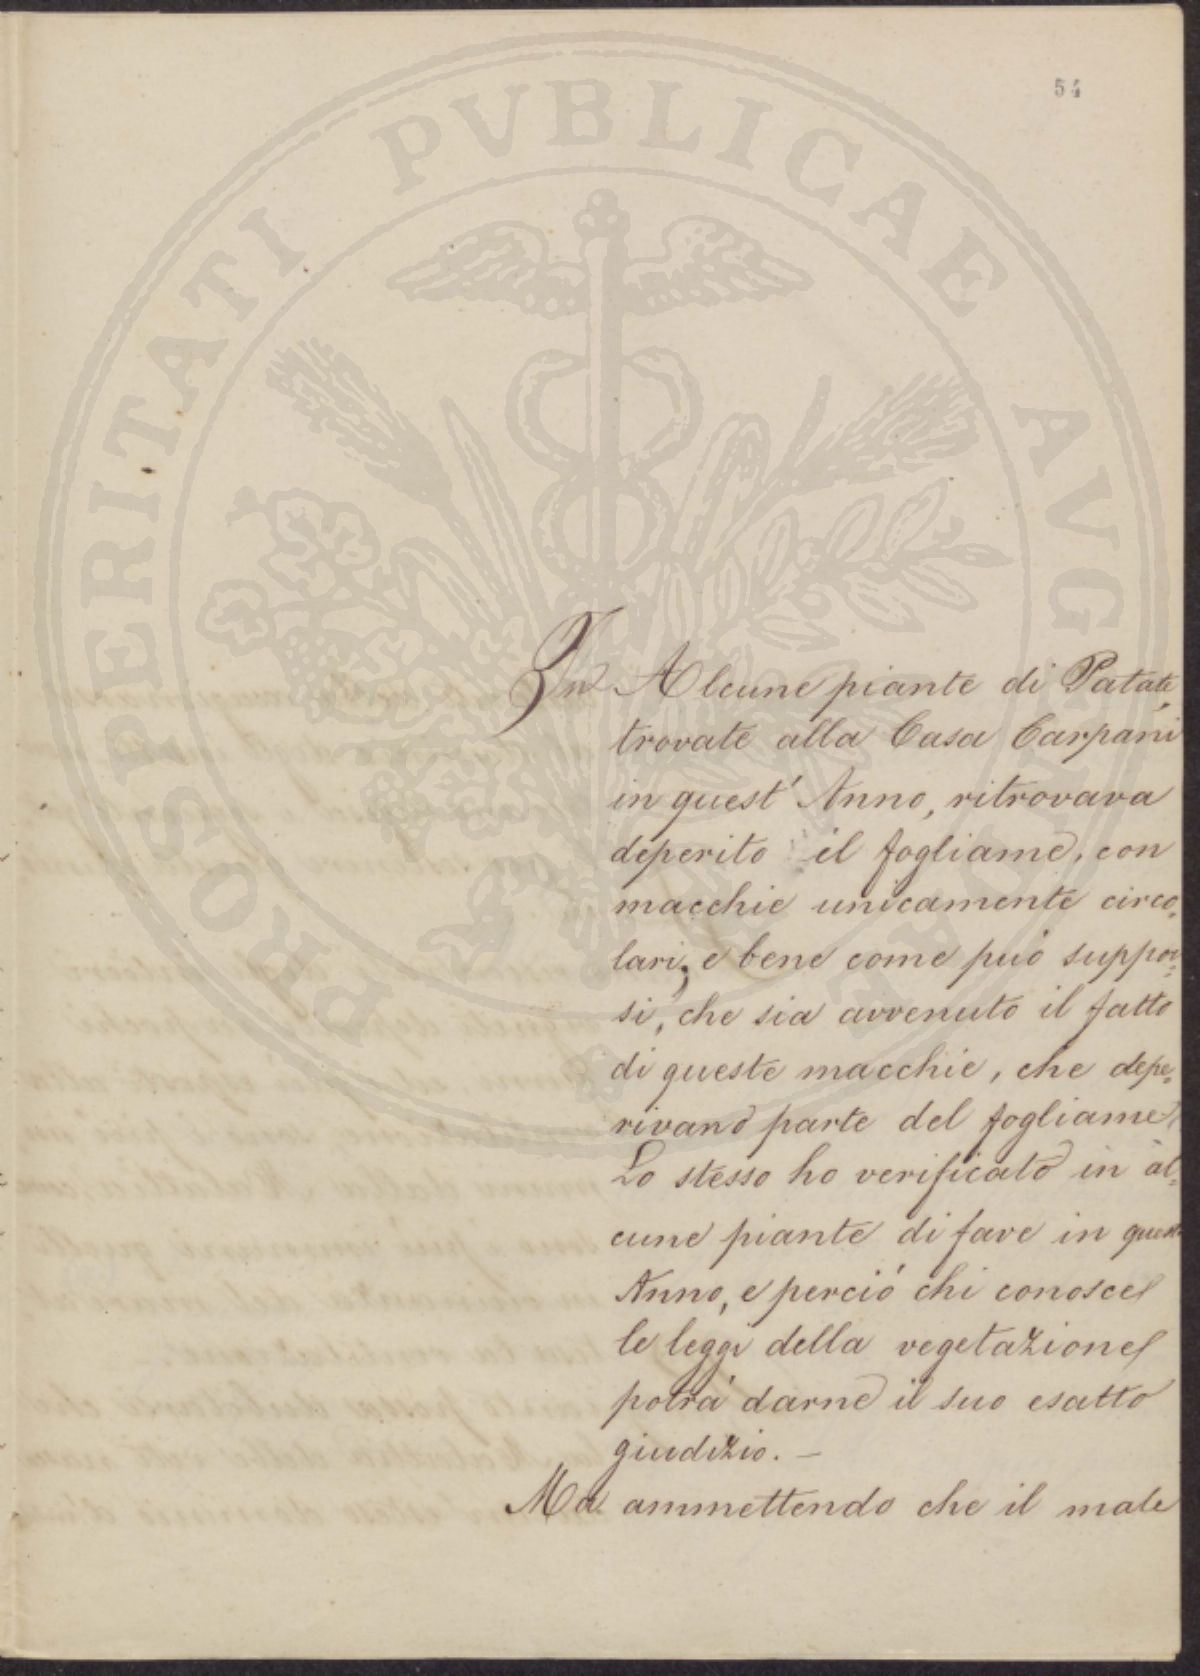 54
PROSPERITATI PVBLICAE AVGENDAE
In Alcune piante di Patate,
trovate alla Casa Carpani
in quest' Anno, ritrovava
deperito il fogliame, con
macchie unicamente circo=
lari; e bene come può suppor=
si, che sia avvenuto il fatto
di queste macchie, che depe=
rivano parte del fogliame.
Lo stesso ho verificato in al=
cune piante di fave in quest'
Anno, e perciò chi conosce
le leggi della vegetazione
potrà darne il suo esatto
giudizio. —
Ma ammettendo che il male